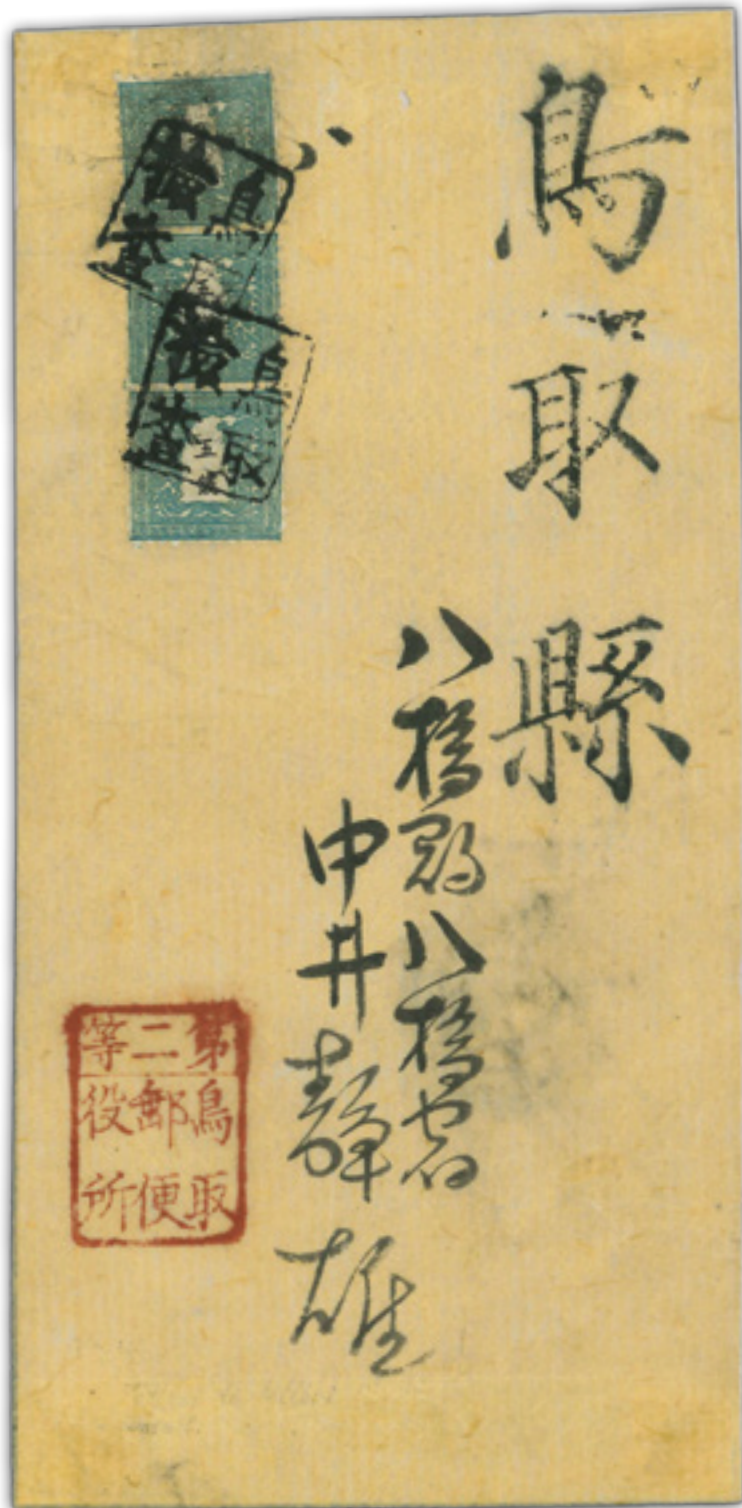 鳥取縣
八橋郡八橋
中井靜雄
鳥
撿査
鳥取
撿査
第二等
鳥取
郵便
役所